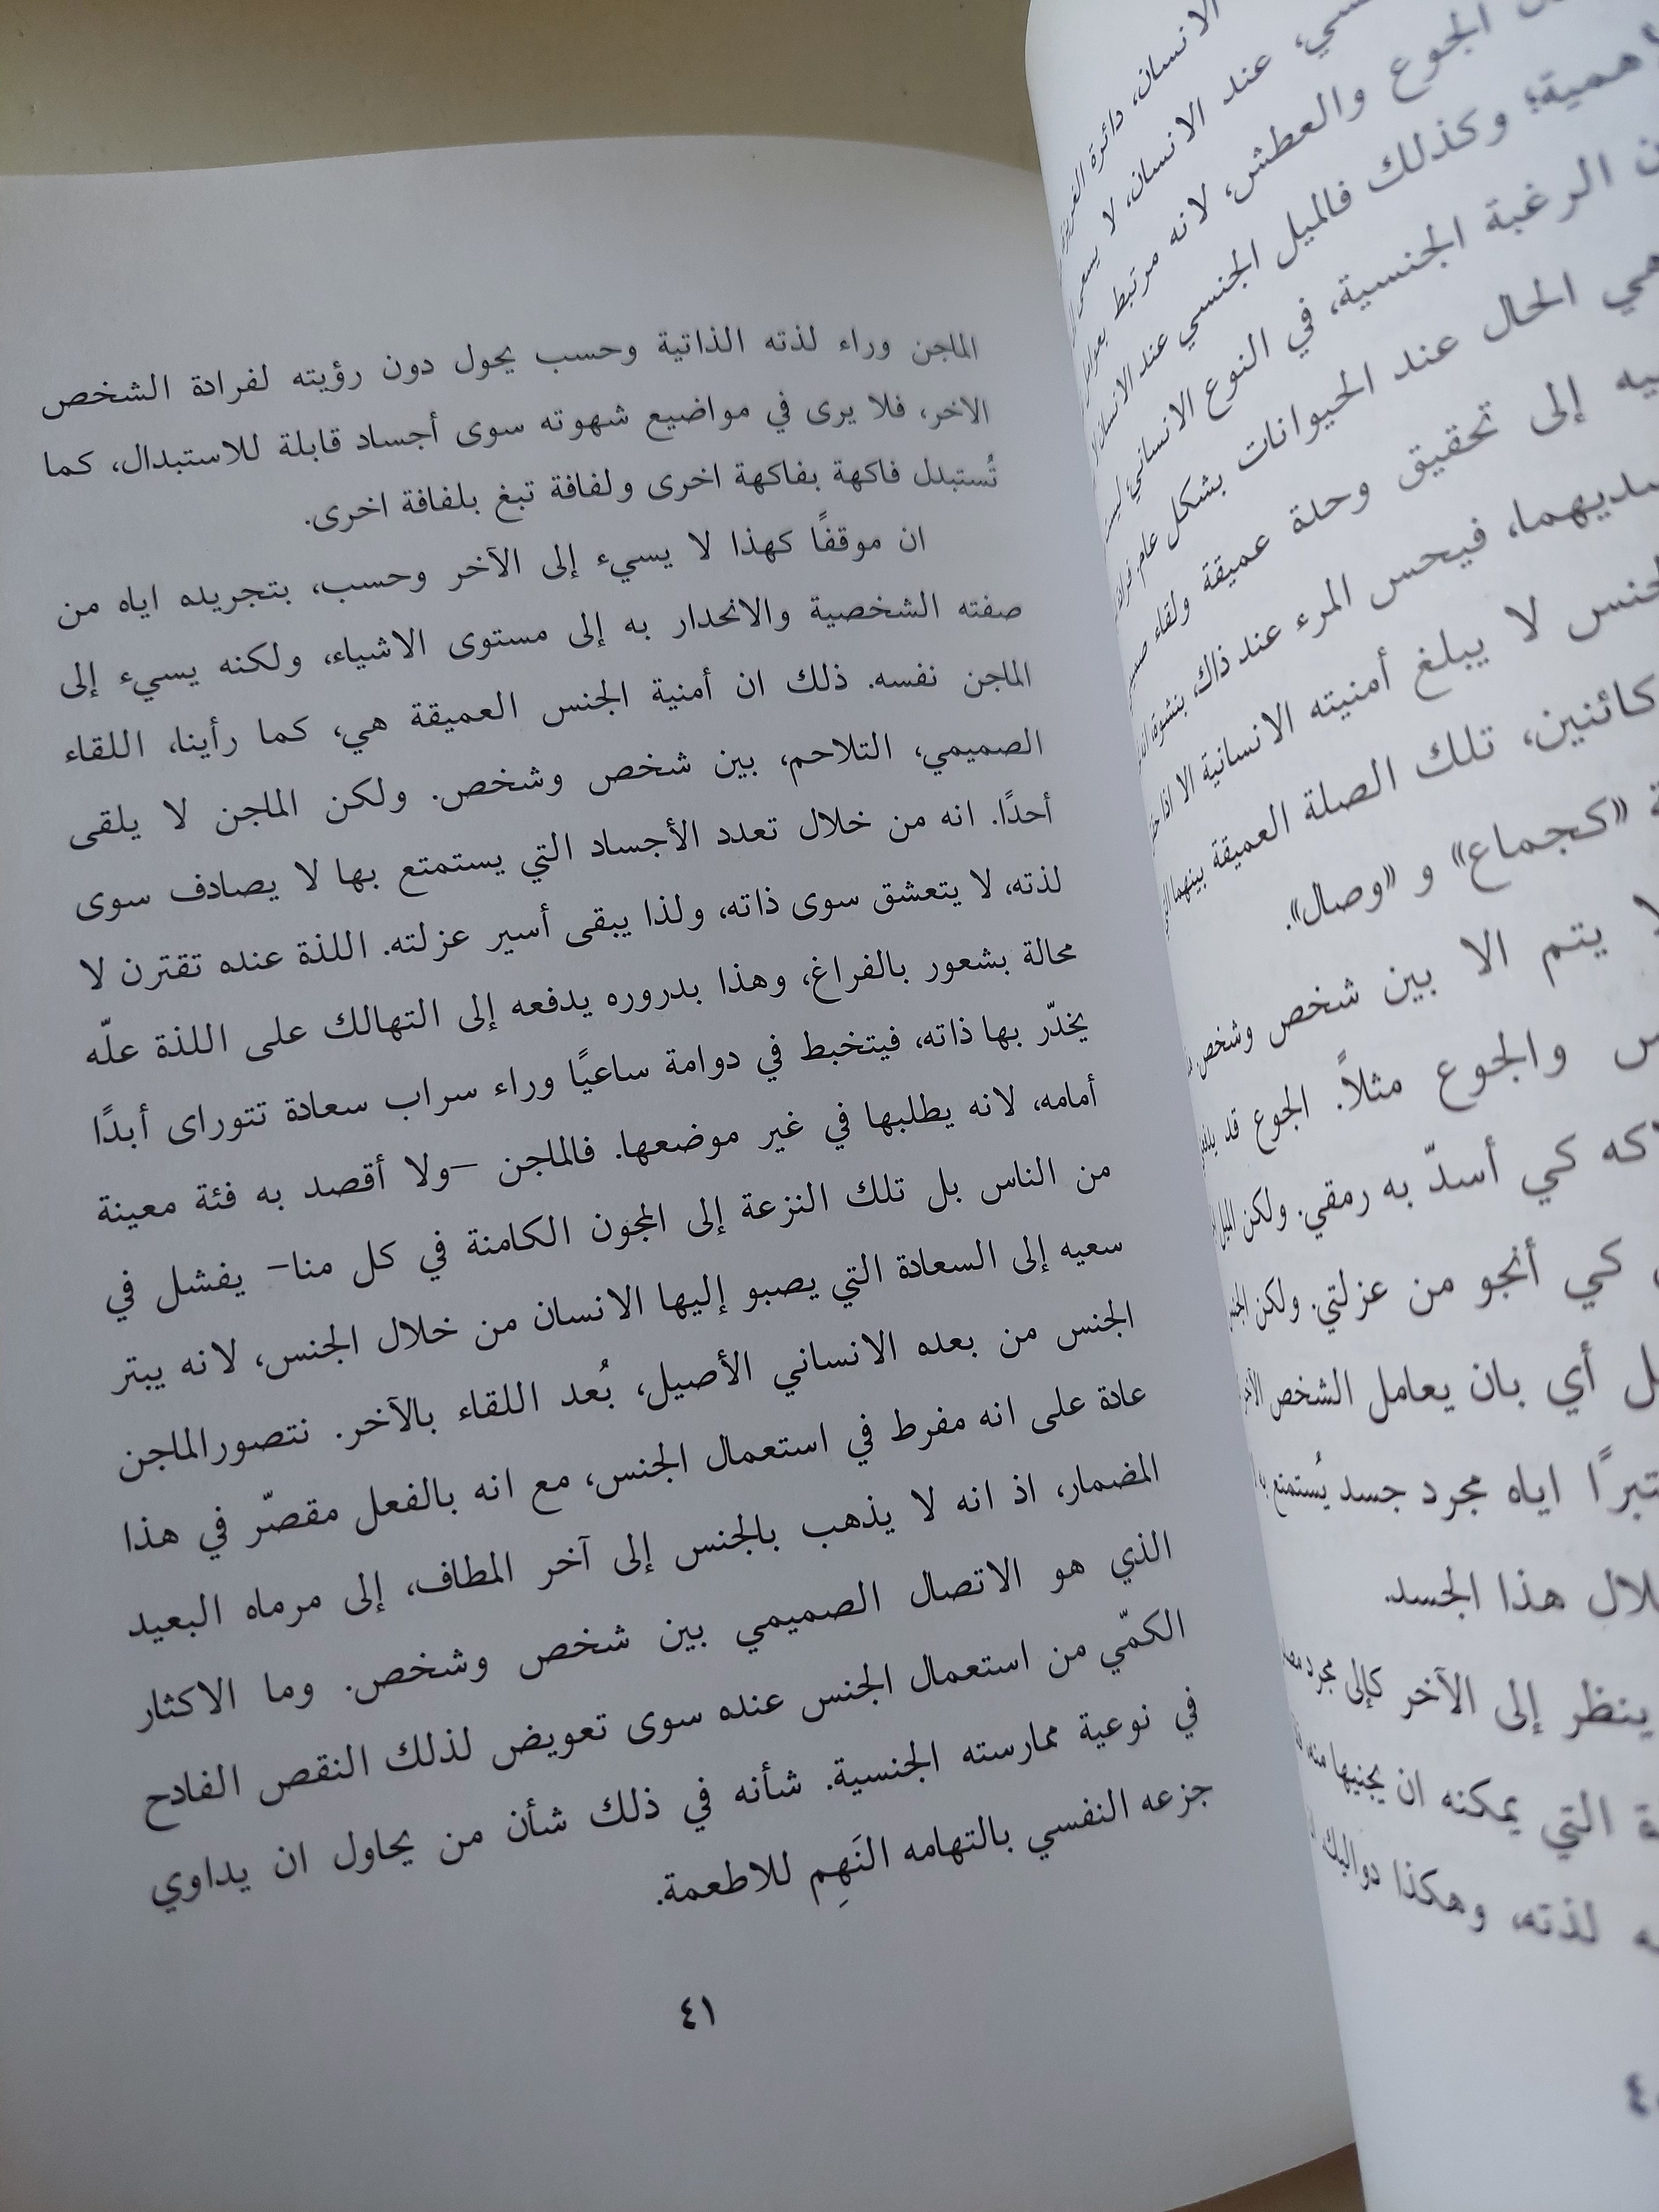 الانسان، دائرة
سي، عند الانسان، لا يسعى
الجوع والعطش، لانه مرتبط بعوامل
همية؛ وكذلك فالميل الجنسي عند الانسان
ن الرغبة الجنسية، في النوع الانساني، ليست
هي الحال عند الحيوانات بشكل عام،
يه إلى تحقيق وحدة عميقة ولقاء
سديهما، فيحس المرء عند ذاك، بنشوة
لجنس لا يبلغ أمنيته الانسانية الا اذا
كائنين، تلك الصلة العميقة بينهما
ة «كجماع» و «وصال».
لا يتم الا بين شخص وشخص
س والجوع مثلاً. الجوع قد
لاكه كي أسدّ به رمقي. ولكن الميل
كي أنجو من عزلتي. ولكن
ل أي بان يعامل الشخص الآخر
تبرًا اياه مجرد جسد يُستمتع به
لال هذا الجسد.
ينظر إلى الآخر كإلى مجرد
ة التي يمكنه ان يجنيها منه،
ه لذته، وهكذا دواليك
الماجن وراء لذته الذاتية وحسب يحول دون رؤيته لفرادة الشخص
الاخر، فلا يرى في مواضيع شهوته سوى أجساد قابلة للاستبدال، كما
تُستبدل فاكهة بفاكهة اخرى ولفافة تبغ بلفافة اخرى.
ان موقفًا كهذا لا يسيء إلى الآخر وحسب، بتجريده اياه من
صفته الشخصية والانحدار به إلى مستوى الاشياء، ولكنه يسيء إلى
الماجن نفسه. ذلك ان أمنية الجنس العميقة هي، كما رأينا، اللقاء
الصميمي، التلاحم، بين شخص وشخص. ولكن الماجن لا يلقى
أحدًا. انه من خلال تعدد الأجساد التي يستمتع بها لا يصادف سوى
لذته، لا يتعشق سوى ذاته، ولذا يبقى أسير عزلته. اللذة عنده تقترن لا
محالة بشعور بالفراغ، وهذا بدروره يدفعه إلى التهالك على اللذة علّه
يخدّر بها ذاته، فيتخبط في دوامة ساعيًا وراء سراب سعادة تتوراى أبدًا
أمامه، لانه يطلبها في غير موضعها. فالماجن –ولا أقصد به فئة معينة
من الناس بل تلك النزعة إلى المجون الكامنة في كل منا– يفشل في
سعيه إلى السعادة التي يصبو إليها الانسان من خلال الجنس، لانه يبتر
الجنس من بعده الانساني الأصيل، بُعد اللقاء بالآخر. نتصورالماجن
عادة على انه مفرط في استعمال الجنس، مع انه بالفعل مقصّر في هذا
المضمار، اذ انه لا يذهب بالجنس إلى آخر المطاف، إلى مرماه البعيد
الذي هو الاتصال الصميمي بين شخص وشخص. وما الاكثار
الكمّي من استعمال الجنس عنده سوى تعويض لذلك النقص الفادح
في نوعية ممارسته الجنسية. شأنه في ذلك شأن من يحاول ان يداوي
جزعه النفسي بالتهامه النَهِم للاطعمة.
٤١